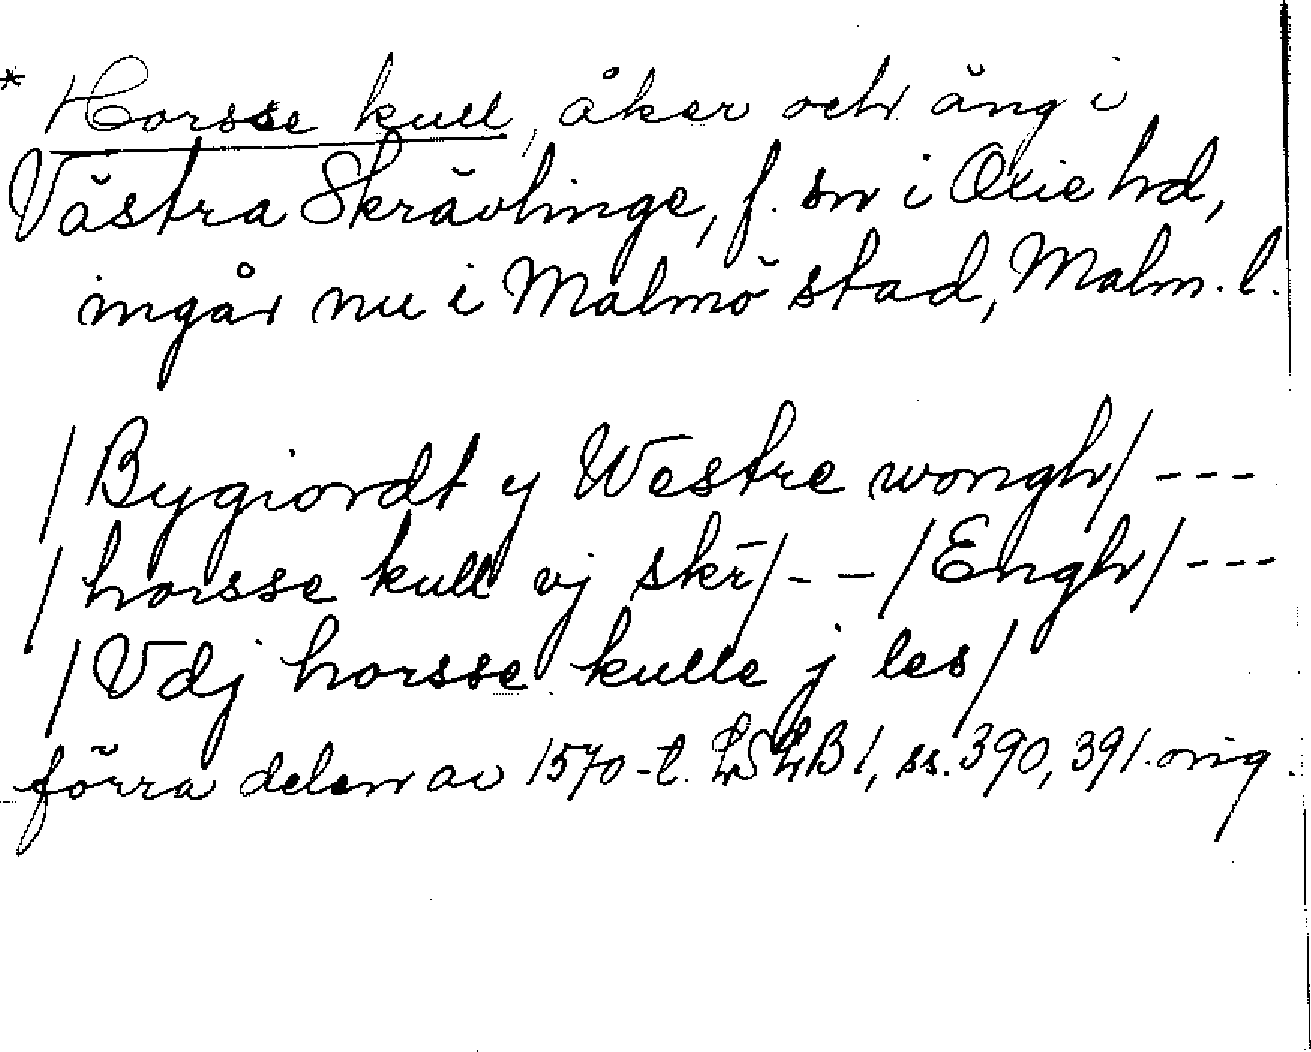 * Horsse kull, åker och äng i
Västra Skrävlinge, f. sn i Oxie hd,
ingår nu i Malmö stad, Malm. l.
/Bygiordt y Westre wongh/ ---
/horsse kull vj skr̄/ -- /Engh/ ---
/Vdj horsse kulle j les/
förra delen av 1570-t. LSLB 1, ss. 390, 391. orig.